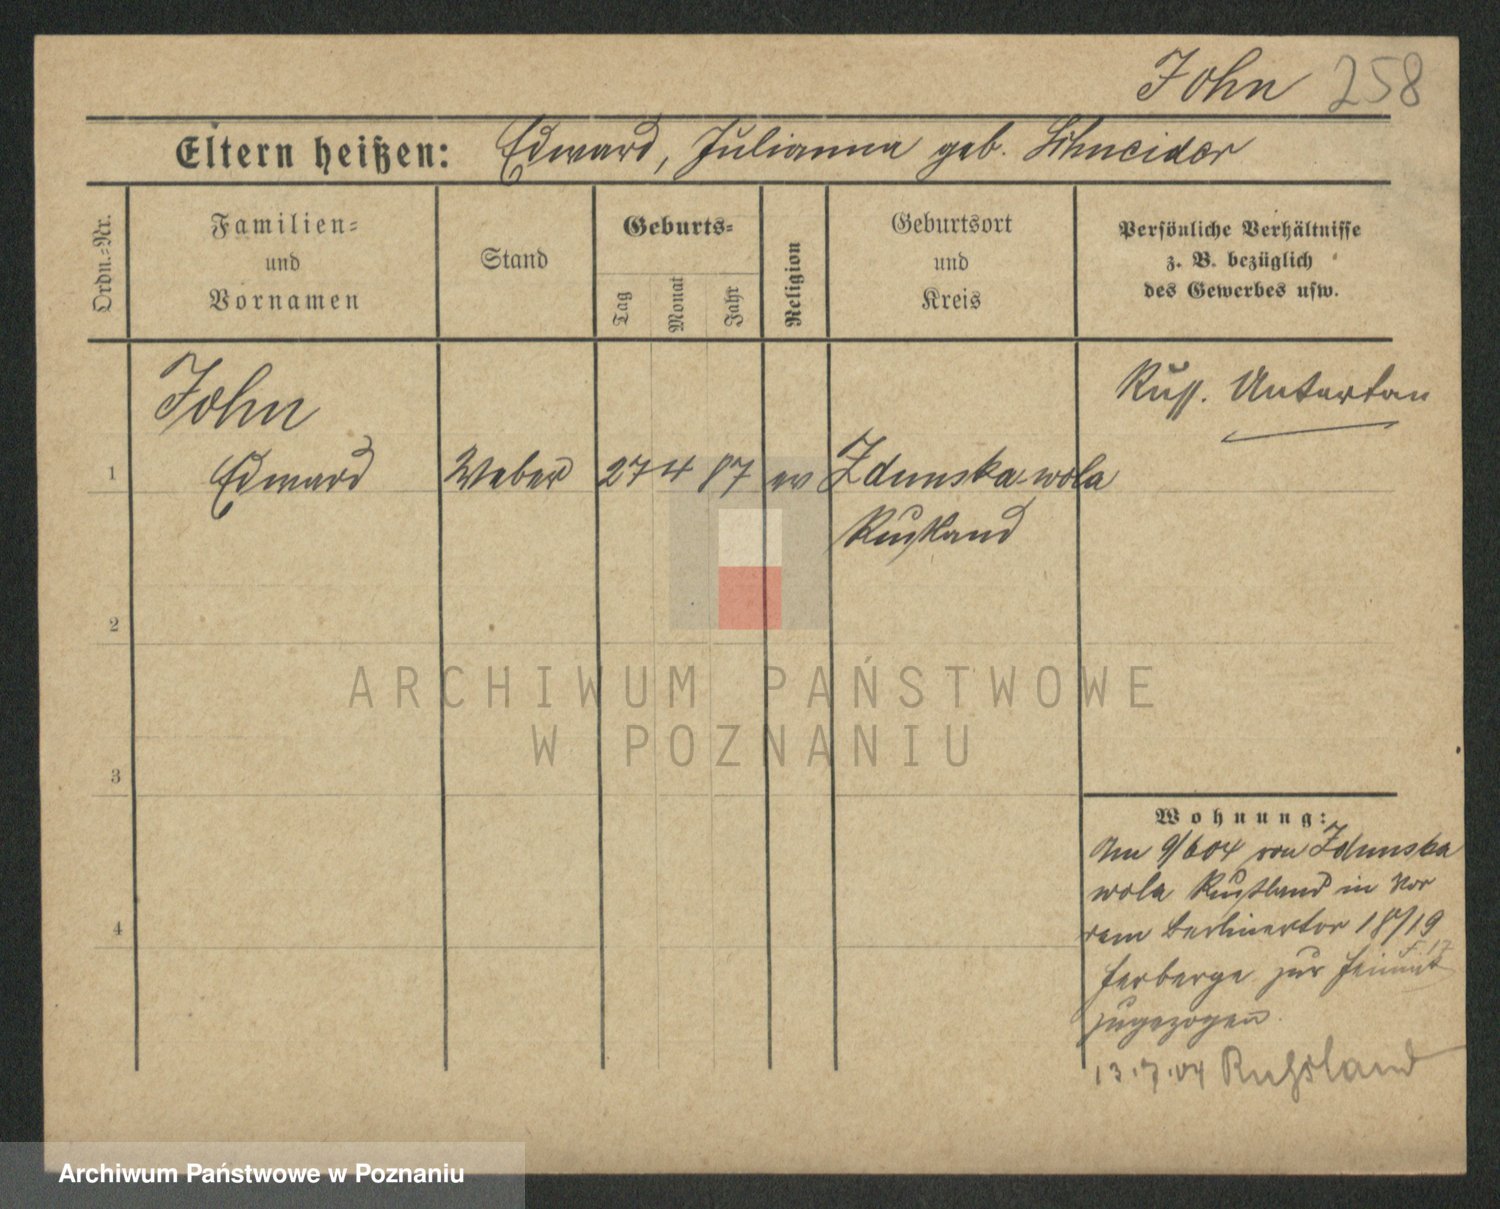 John 258
Eltern heißen: Edward, Julianna geb. Schneider
Ordn.-Nr.
Familien-
und
Vornamen
Stand
Geburts-
Tag
Monat
Jahr
Religion
Geburtsort
und
Kreis
Persönliche Verhältnisse
z. B. bezüglich
des Gewerbes usw.
John
Russ. Untertan
1 Edward Weber 27 4 87 ev Zdunska-wola
Russland
2
ARCHIWUM PAŃSTWOWE
W POZNANIU
3
Wohnung:
Am 9/6 04 von Zdunska
wola Russland in Vor
dem Berlinertor 18/19
Herberge zur Heimat
zugezogen.
4
13.7.04 Russland
Archiwum Państwowe w Poznaniu